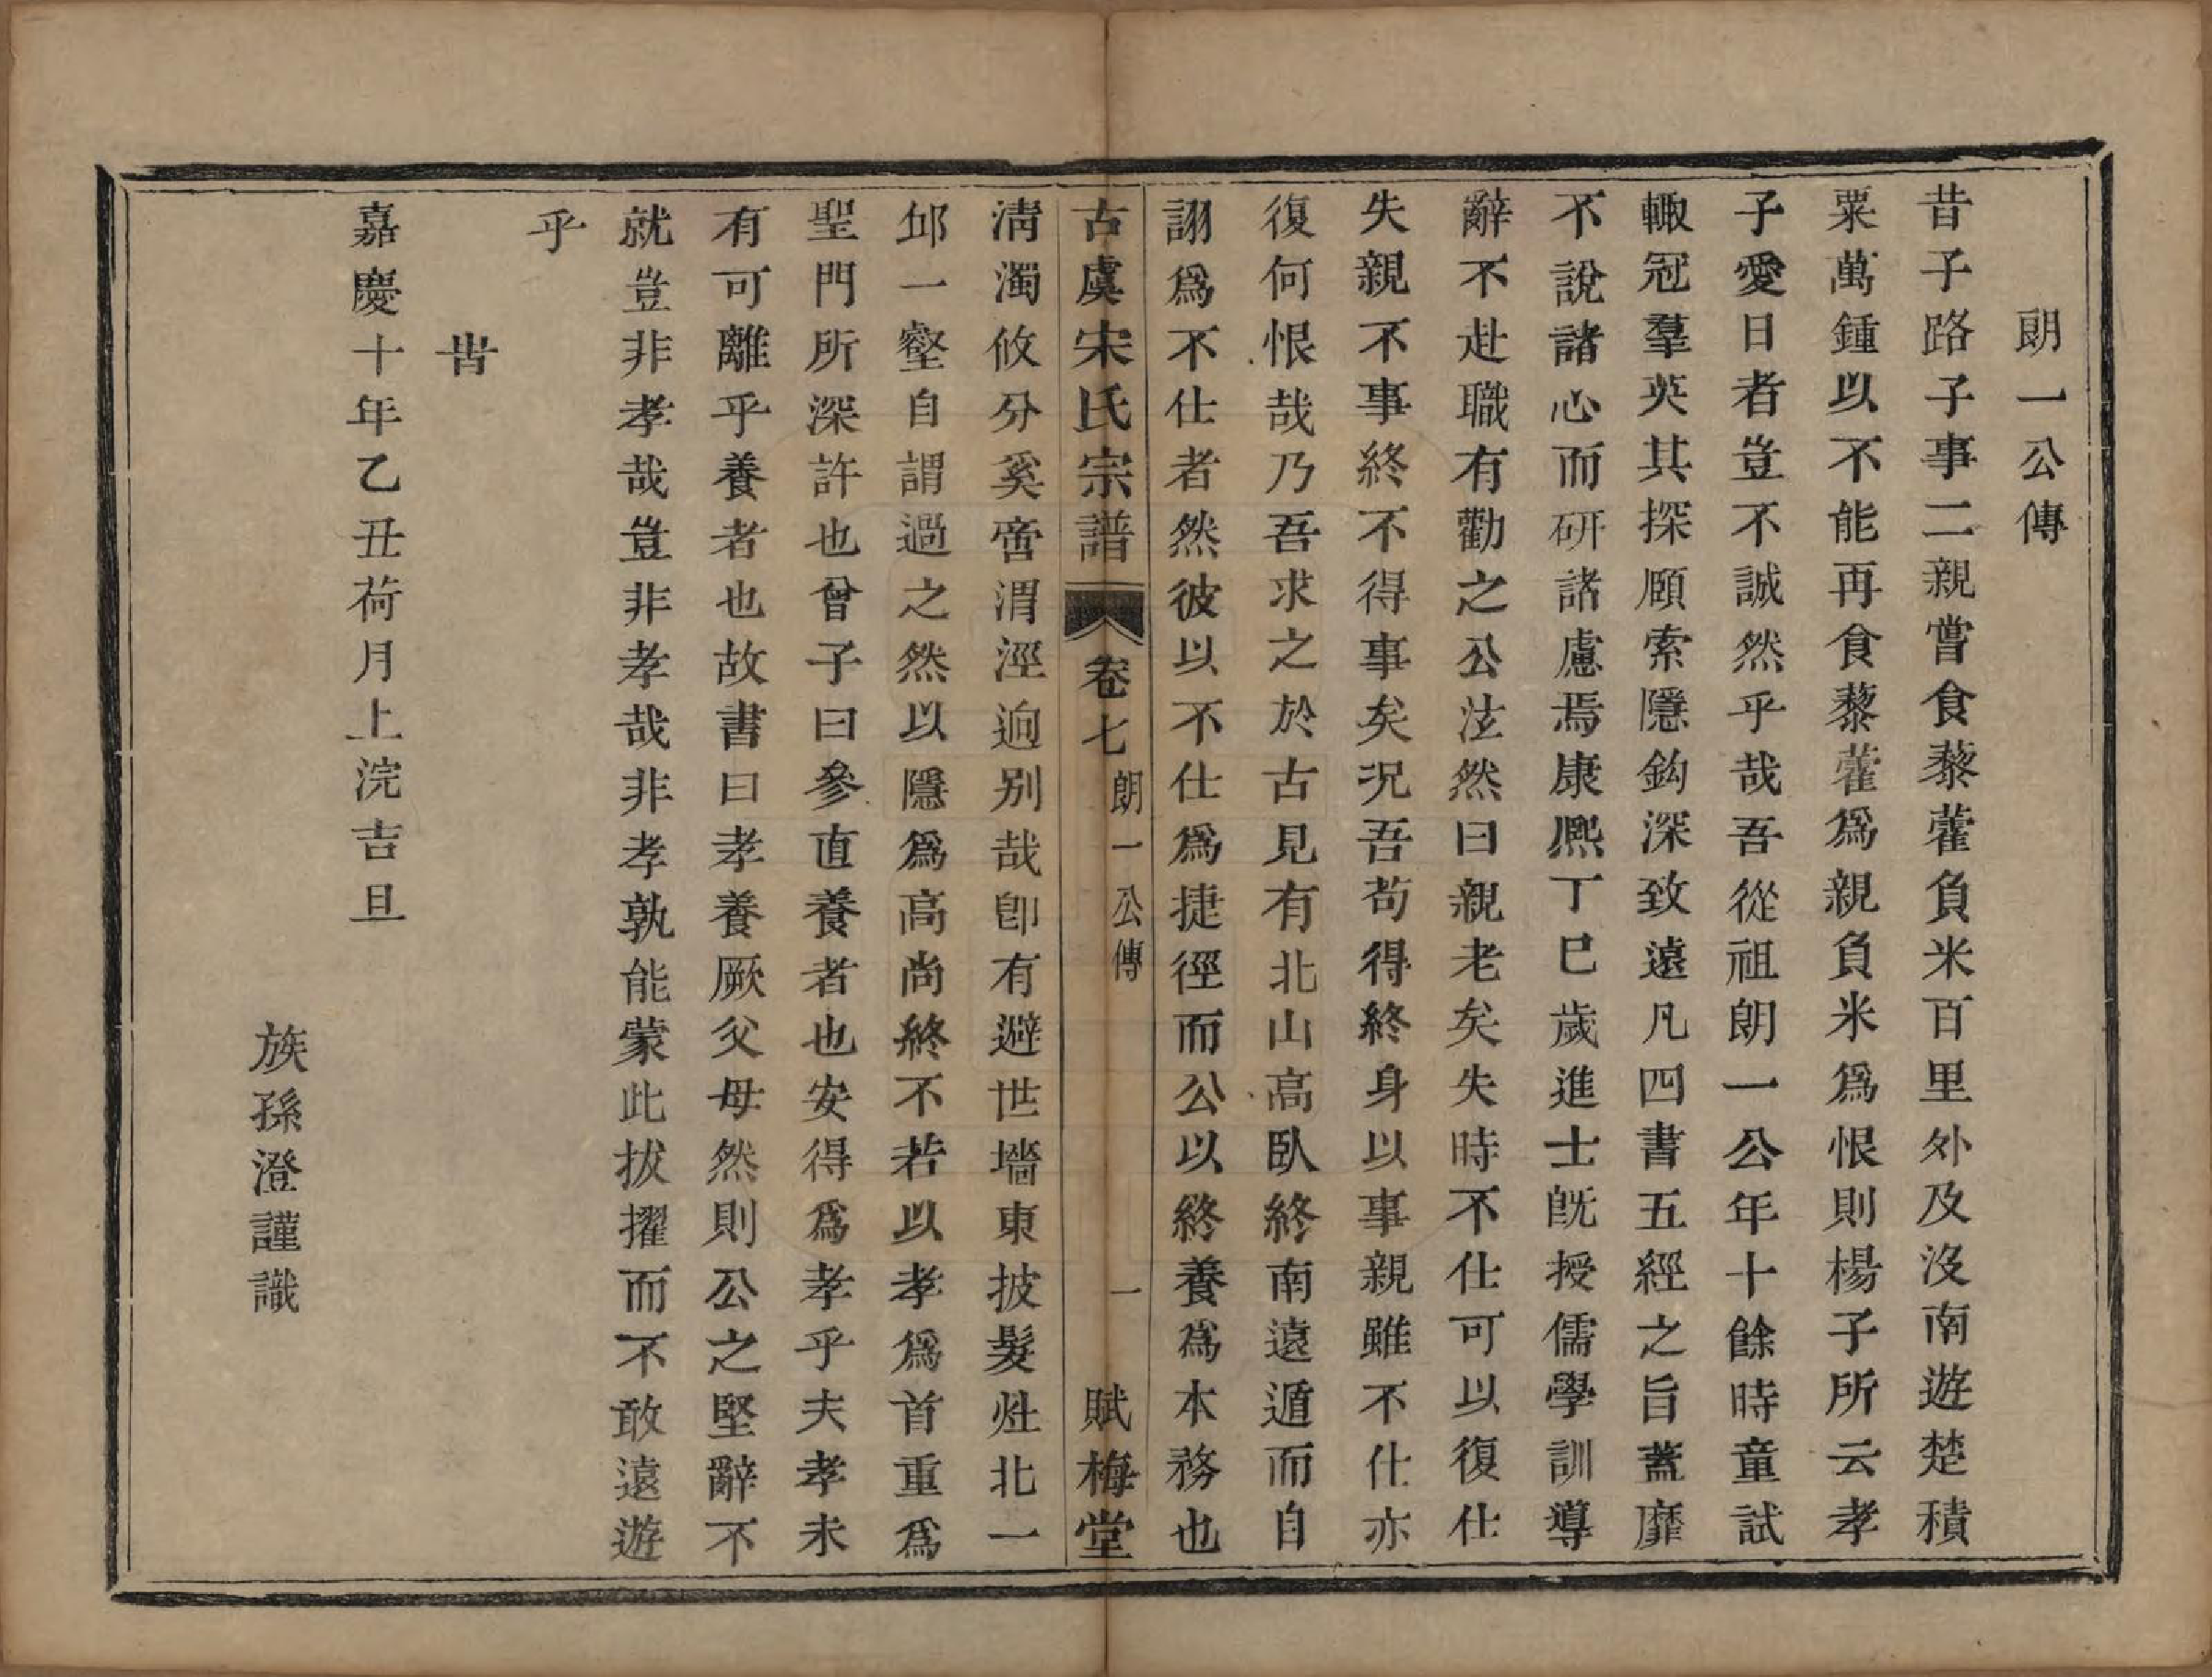 朗一公傳
昔子路子事二親嘗食藜藿負米百里外及沒南遊楚積
粟萬鍾以不能再食藜藿爲親負米爲恨則楊子所云孝
子愛日者豈不誠然乎哉吾從祖朗一公年十餘時童試
輙冠羣英其探頤索隱鈎深致遠凡四書五經之旨蓋靡
不說諸心而硏諸慮焉康熙丁巳歲進士旣授儒學訓導
辭不赴職有勸之公泫然曰親老矣失時不仕可以復仕
失親不事終不得事矣況吾苟得終身以事親雖不仕亦
復何恨哉乃吾求之於古見有北山高臥終南遠遁而自
詡爲不仕者然彼以不仕爲捷徑而公以終養爲本務也
古虞宋氏宗譜 卷七 朗一公傳 一 賦梅堂
淸濁攸分奚啻渭涇逈别哉卽有避世墻東披髮灶北一
邱一壑自謂過之然以隱爲高尚終不若以孝爲首重爲
聖門所深許也曾子曰參直養者也安得爲孝乎夫孝未
有可離乎養者也故書曰孝養厥父母然則公之堅辭不
就豈非孝哉豈非孝哉非孝孰能蒙此拔擢而不敢遠遊
乎
旹
嘉慶十年乙丑荷月上浣吉旦
族孫澄謹識